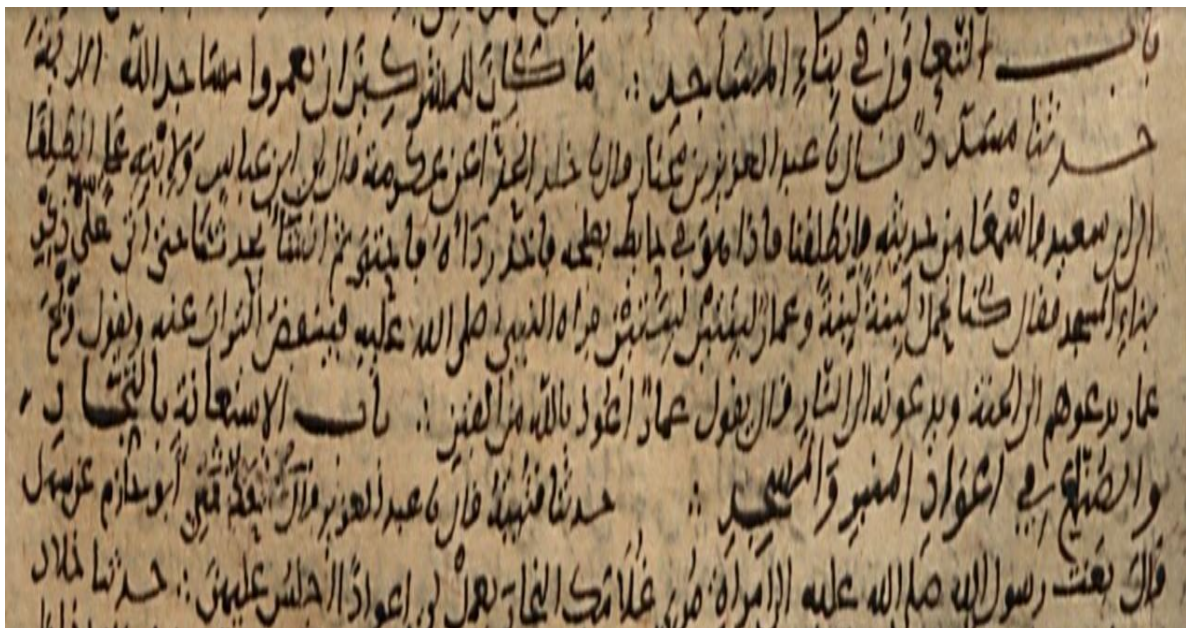 باب التعاون في بناء المساجد ∴ ما كان للمشركين ان يعمروا مساجد الله الاية
حدثنا مسدد قال نا عبد العزيز بن مختار قال نا خلد الحذا عن عكرمة قال لي ابن عباس ولابنه علي انطلقا
الى ابي سعيد فاسمعا من حديثه فانطلقنا فاذا هو في حايط يصلحه فاخذ رداه فاحتبى ثم انشا يحدثنا حتى اتى على ذكر
بناء المسجد فقال كنا نحمل لبنة لبنة وعمار لبنتين لبنتين فراه النبي صلى الله عليه فينفض التراب عنه ويقول ويح
عمار يدعوهم الى الجنة ويدعونه الى النار قال يقول عمار اعوذ بالله من الفتن ∴ باب الاستعانة بالنجار
والصناع في اعواد المنبر والمسجد ∴ حدثنا قتيبة قال نا عبد العزيز قال ابو حازم عن سهل
قال بعث رسول الله صلى الله عليه الى امراة مري غلامك النجار يعمل لي اعوادا اجلس عليهن ∴ حدثنا خلاد